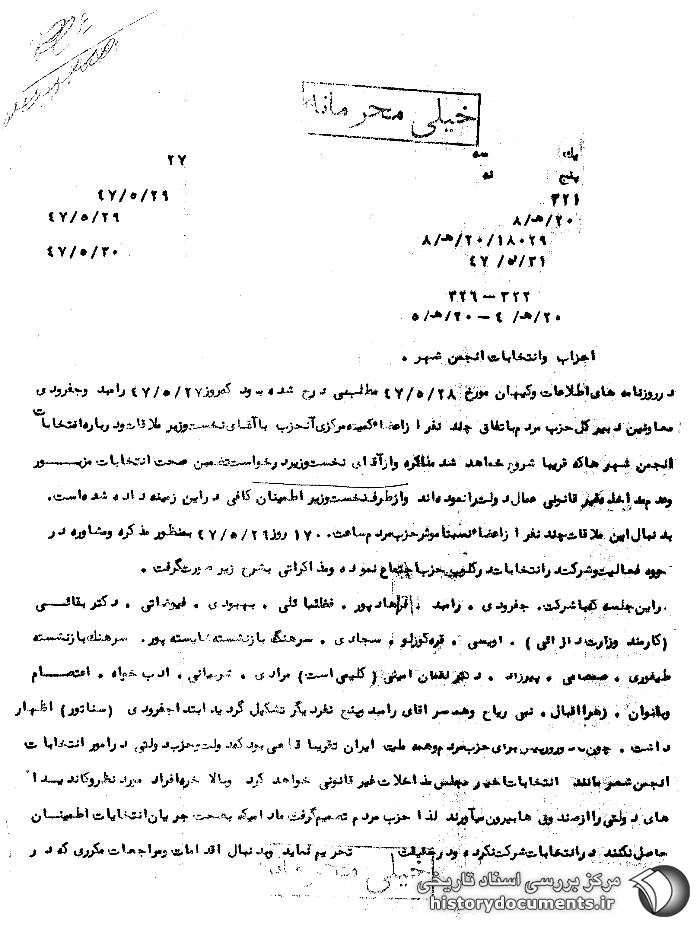 خیلی محرمانه
یک
سه
۲۷
پنج
۳۲۱
۴۷/۵/۲۹
۲۰/هـ/۸
۴۷/۵/۲۹
۱۸۰۲۹/۲۰/هـ/۸
۴۷/۵/۳۱
۴۷/۵/۳۰
۳۲۲ – ۳۲۶
۲۰/هـ/ ۴ – ۲۰/هـ/۵
احزاب وانتخابات انجمن شهر .
در روزنامه های اطلاعات و کیهان مورخ ۴۷/۵/۲۸ مطلبی درج شده بود که روز ۴۷/۵/۲۷ رامبد وجفرودی
معاونین دبیر کل حزب مردم باتفاق چند نفر از اعضاء کمیته مرکزی آنحزب با آقای نخست وزیر ملاقات ودرباره انتخابات
انجمن شهر ها که قریبا شروع خواهد شد مذاکره واز آقای نخست وزیر درخواست تضمین صحت انتخابات مزبور
وعدم مداخله غیر قانونی عمال دولت را نموده اند واز طرف نخست وزیر اطمینان کافی در این زمینه داده شده است.
بدنبال این ملاقات چند نفر از اعضاء نسبتا موثر حزب مردم ساعت ۱۷۰۰ روز ۴۷/۵/۲۹ بمنظور مذکره ومشاوره در
فعالیت وشرکت در انتخابات در کلوپ حزب اجتماع نموده ومذاکراتی بشرح زیر صورت گرفت .
در این جلسه که با شرکت . جفرودی . رامبد . فرهادپور . فضائلی . بهبودی . . دکتر بقائی
(کارمند وزارت دارائی ) . اویسی . قره گوزلو . سجادی . سرهنگ بازنشسته شایسته پور . سرهنگ بازنشسته
طیفوری . صمصامی . پیرزاد . دکتر لقمان امینی (کلیمی است) مرادی . نریمانی . ادب خواه . اعتصام
وبانوان . زهرا اقبال . ریاح وهمسر اقای رامبد وپنج نفر دیگر تشکیل گردید ابتدا جفرودی (سناتور) اظهار
داشت . چون برای حزب مردم وهمه ملت ایران تقریبا بود که دولت وحزب دولتی در امور انتخابات
انجمن شهر مانند انتخابات اخیر مجلس مداخلات غیر قانونی خواهد کرد وبالاخره افراد مورد نظر وکاندیدا
های دولتی را از صندوق ها بیرون میآورند لذا حزب مردم تصمیم گرفت مادامیکه بصحت جریان انتخابات اطمینان
حاصل نکند در انتخابات شرکت نکرده ودر حقیقت تحریم نماید وبدنبال اقدامات ومراجعات مکرری که در
خیلی محرمانه
مرکز بررسی اسناد تاریخی
historydocuments.ir